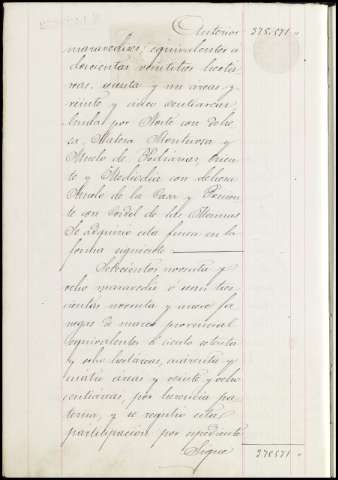 Anterior 378.571 "
maravedises, equivalentes a
doscientas veintitres hectá
reas, sesenta y un areas y
veinte y cinco centiareas,
linda por Norte con dehe
sa, Matera Montuosa y
Suelo de Medianas, Orien
te y Mediodia con dehesa
Suelo de la Casa y Ponien
te con Cordel de las Merinas
Se adquirio esta finca en la
forma siguiente
Setecientos noventa y
ocho maravedis o sean tres
cientas noventa y nueve fa
negas de marco provincial
equivalentes a ciento setenta
y ocho hectareas, cuarenta y
cuatro áreas y veinte y ocho
centiáreas, por herencia pa
terna, y se registro esta
participacion por expediente
Sigue 378571 "